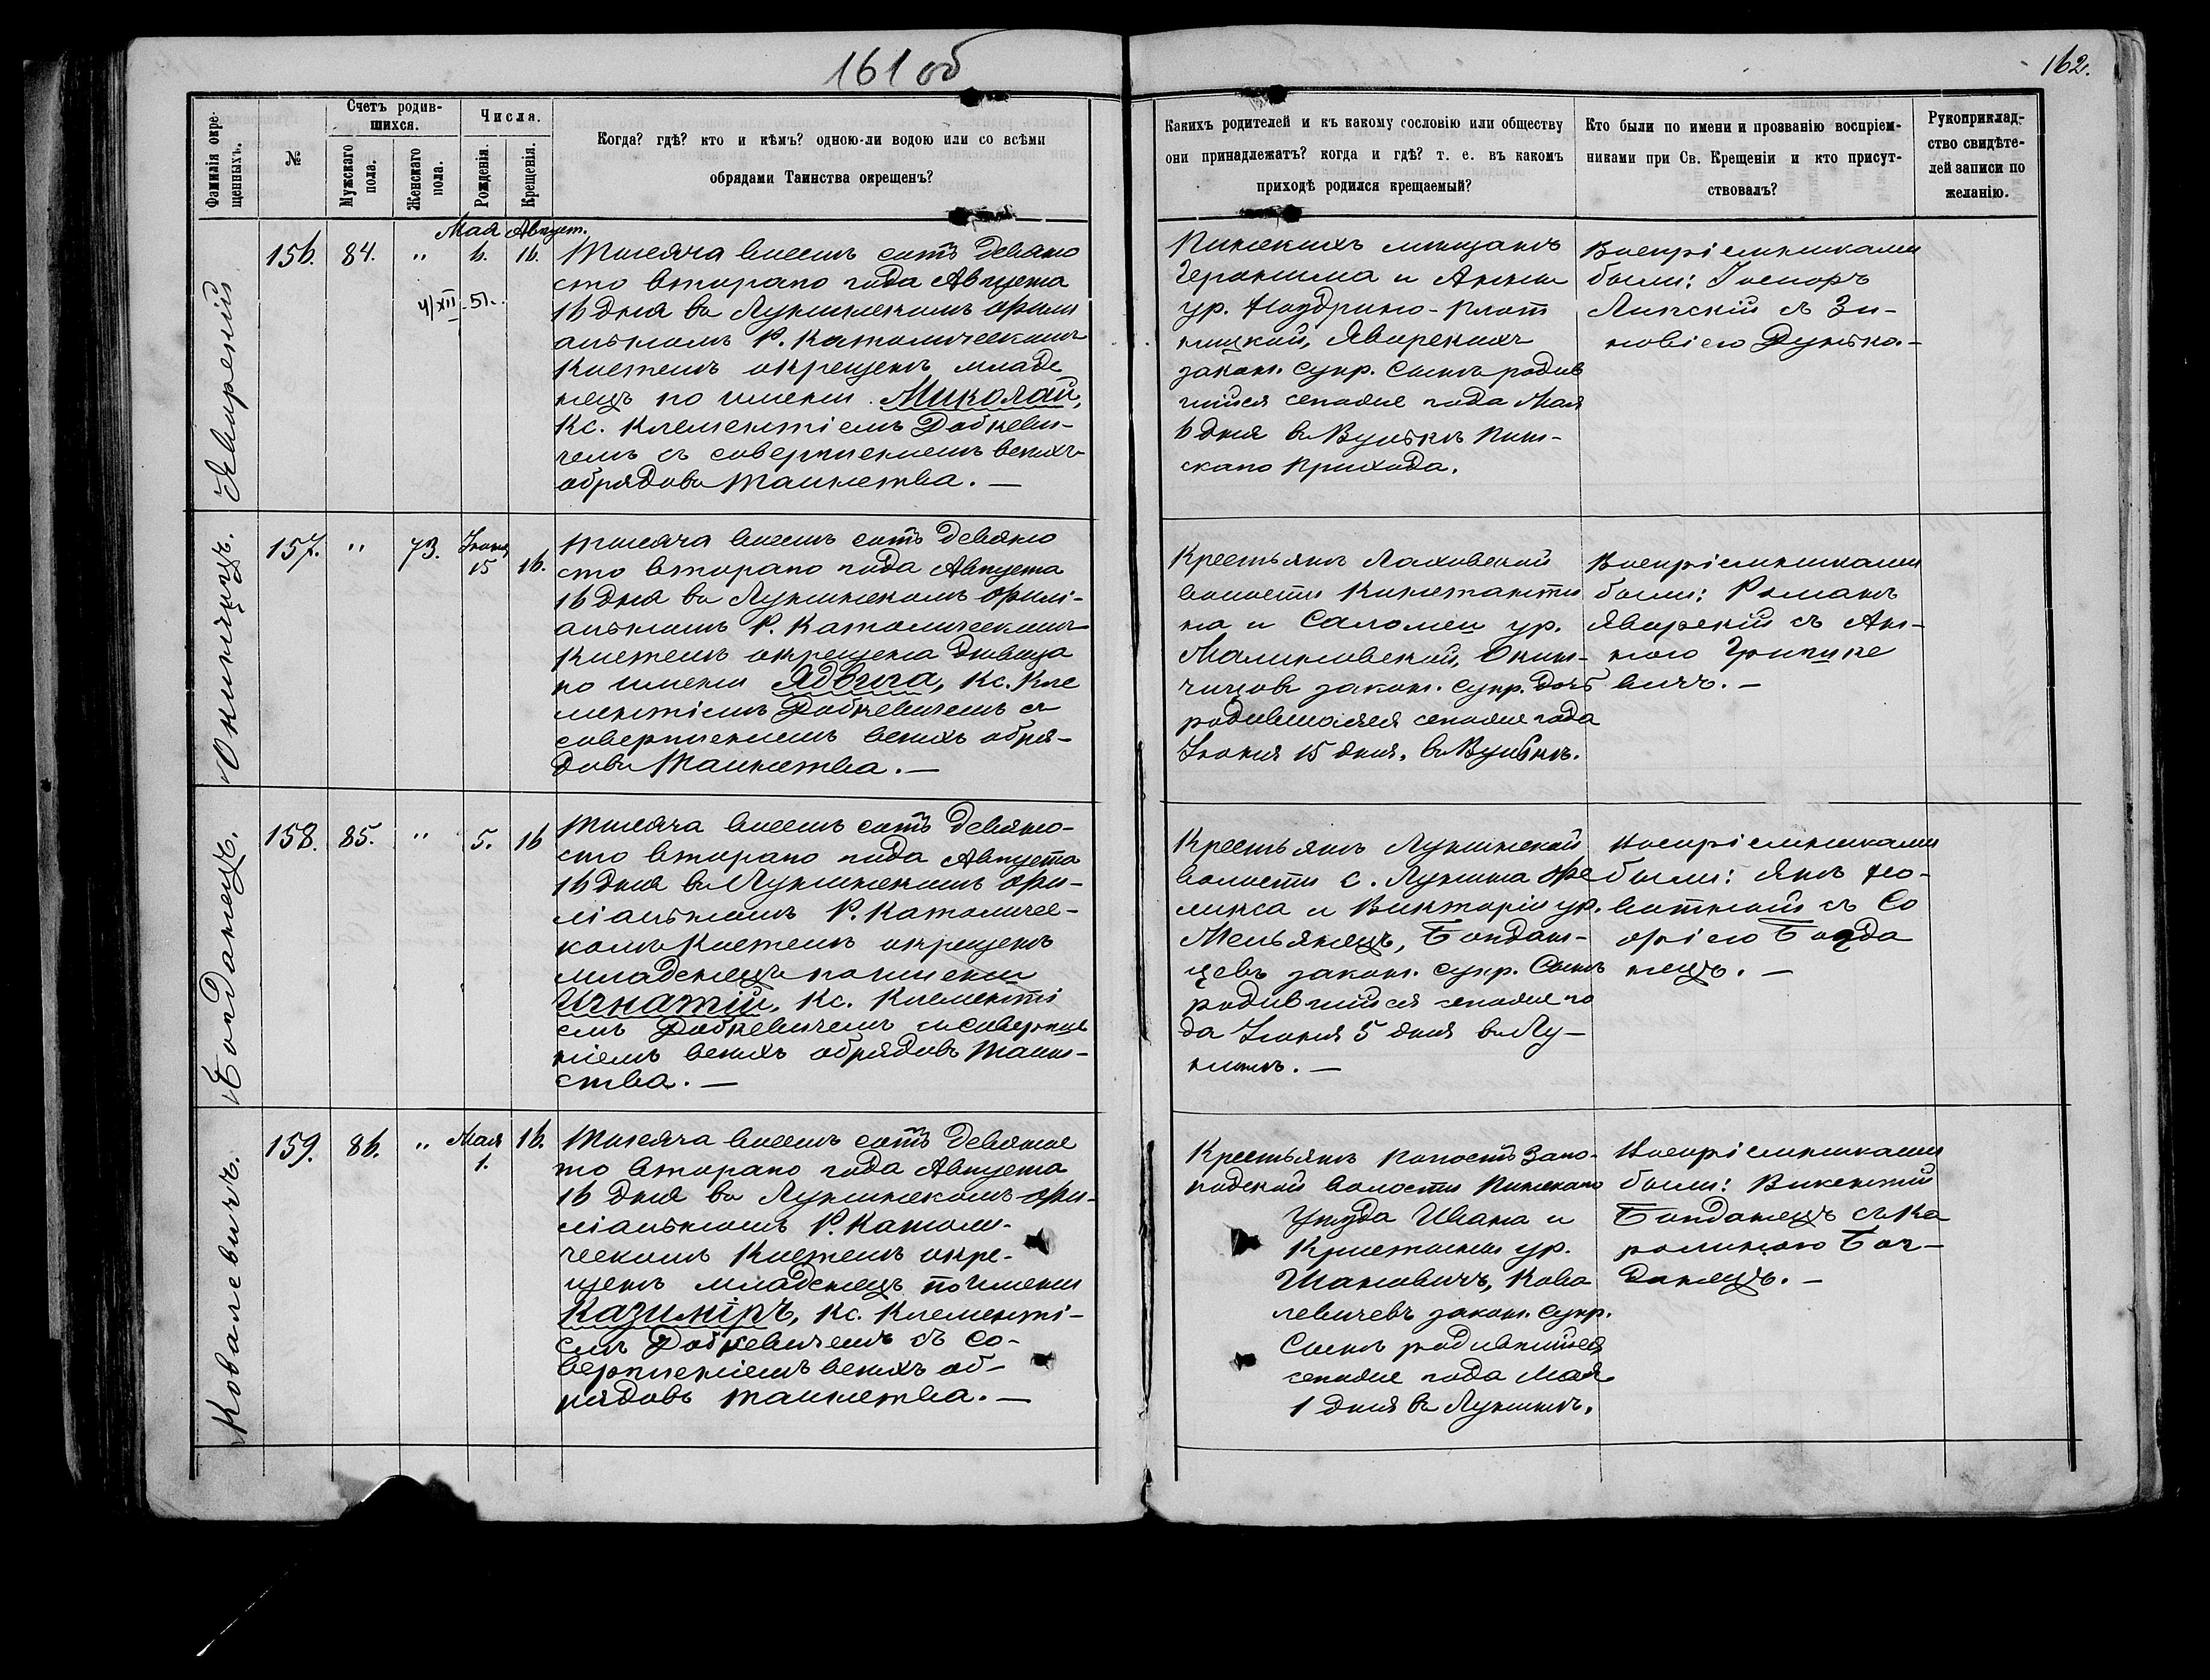 161 об
162.
Фамилія окре-
щенныхъ.
№
Счетъ родив-
шихся.
Мужскаго
пола.
Женскаго
пола.
Числа.
Рожденія.
Крещенія.
Когда? гдѣ? кто и кѣмъ? одною-ли водою или со всѣми
обрядами Таинства окрещенъ?
Какихъ родителей и къ какому сословію или обществу
они принадлежатъ? когда и гдѣ? т. е. въ какомъ
приходѣ родился крещаемый?
Кто были по имени и прозванію воспріем-
никами при Св. Крещеніи и кто присут-
ствовалъ?
Рукоприклад-
ство свидѣте-
лей записи по
желанію.
Яворскій
156.
84.
"
Мая
6.
Август.
16.
4/XII-51.
Тысяча восемь сотъ девяно
сто втораго года Августа
16 дня въ Лунинскомъ фили
альномъ Р. Католическомъ
Костелѣ окрещенъ младе
нецъ по имени Миколай,
Кс. Клементіемъ Добкеви-
чемъ съ совершеніемъ всѣхъ
обрядовъ Таинства. —
Пинскихъ мѣщанъ
Геронима и Анны
ур.
Яворскихъ
закон. супр. Сынъ родив
шійся сегоже года Мая
6 дня въ Вулькѣ Пин-
скаго Прихода.
Воспріемниками
были: Іосифъ
Липскій съ Зи-
новіею
Окиничицъ.
157.
"
73.
Іюня
15
16.
Тысяча восемь сотъ девяно
сто втораго года Августа
16 дня въ Лунинскомъ фили-
альномъ Р. Католическомъ
Костелѣ окрещена дѣвица
по имени Ядвига, Кс. Кле
ментіемъ Добкевичемъ съ
совершеніемъ всѣхъ обря-
довъ Таинства. —
Крестьянъ Лаховской
волости Константи
на и Саломеи ур.
Малиновской, Окин-
чицовъ закон. супр. дочь
родившаяся сегоже года
Іюня 15 дня. въ Вулькѣ.
Воспріемниками
были: Романъ
Яворскій съ Ан-
ною Грицке
вичъ. —
Богданецъ.
158.
85.
"
5.
16
Тысяча восемь сотъ девяно-
сто втораго года Августа
16 дня въ Лунинскомъ фи-
ліальномъ Р. Католичес-
комъ Костелѣ окрещенъ
младенецъ по имени
Игнатій, Кс. Клементі
емъ Добкевичемъ съ соверше
ніемъ всѣхъ обрядовъ Таин-
ства. —
Крестьянъ Лунинской
волости с. Лунина Фе
ликса и Викторіи ур.
Мельянецъ, Богдан-
цевъ закон. супр. Сынъ
родившійся сегоже го
да Іюня 5 дня въ Лу-
нинѣ. —
Воспріемниками
были: Янъ
съ Со
фіею Богда
нецъ. —
Ковалевичъ.
159.
86.
"
Мая
1.
16.
Тысяча восемь сотъ девянос
то втораго года Августа
16 дня въ Лунинскомъ фи-
ліальномъ Р. Католи-
ческомъ Костелѣ окре-
щенъ младенецъ по имени
Казиміръ, Кс. Клементі-
емъ Добкевичемъ съ со-
вершеніемъ всѣхъ об-
рядовъ таинства. —
Крестьянъ Погостъ Заго-
родской волости Пинскаго
Уѣзда Ивана и
Кристины ур.
Шановичъ, Кова
левичевъ закон. супр.
Сынъ родившійся
сегоже года Мая
1 дня въ Лунинѣ.
Воспріемниками
были: Викентій
Богданецъ съ Ка
ролиною Бог-
данецъ. —